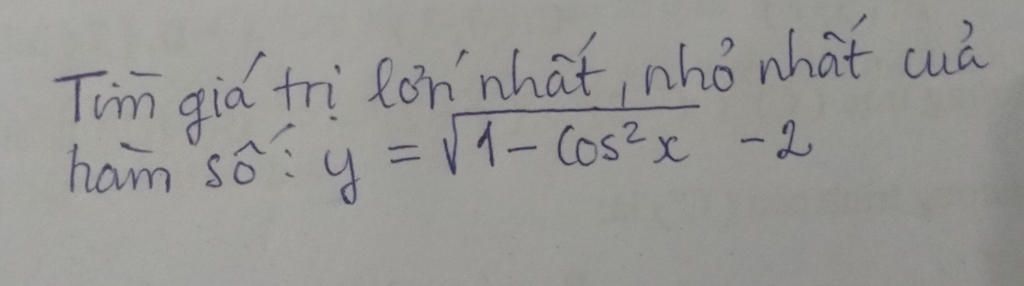 Tìm giá trị lớn nhất, nhỏ nhất của
hàm số: y = √1 - cos²x - 2